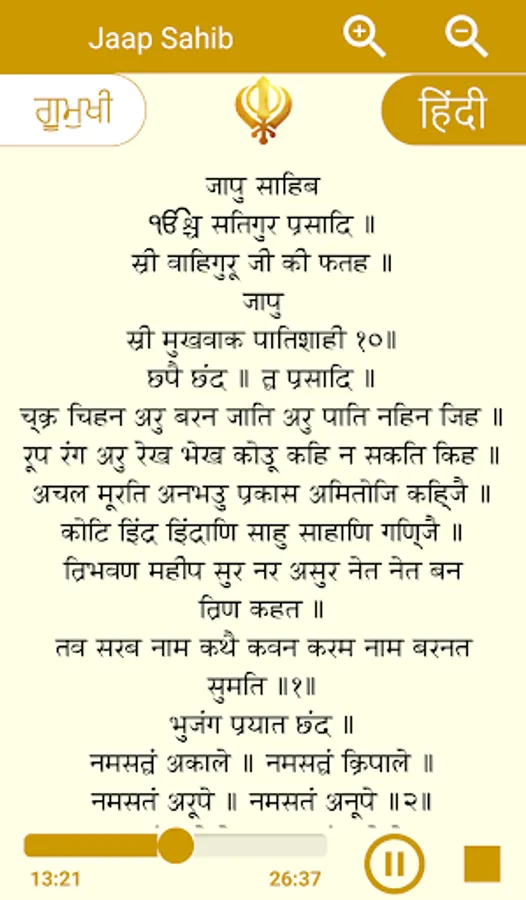 Jaap Sahib
ਗੁਮੁਖੀ
हिंदी
जापु साहिब
ੴ सतिगुर प्रसादि ॥
स्री वाहिगुरू जी की फतह ॥
जापु
स्री मुखवाक पातिशाही १०॥
छपै छंद ॥ त्व प्रसादि ॥
च्क्र चिहन अरु बरन जाति अरु पाति नहिन जिह ॥
रूप रंग अरु रेख भेख कोउू कहि न सकति किह ॥
अचल मूरति अनभउु प्रकास अमितोजि कहि्जै ॥
कोटि इिंद्र इिंद्राणि साहु साहाणि गणि्जै ॥
त्रिभवण महीप सुर नर असुर नेत नेत बन
त्रिण कहत ॥
तव सरब नाम कथै कवन करम नाम बरनत
सुमति ॥१॥
भुजंग प्रयात छंद ॥
नमसत्वं अकाले ॥ नमसत्वं क्रिपाले ॥
नमसतं अरूपे ॥ नमसतं अनूपे ॥२॥
13:21
26:37